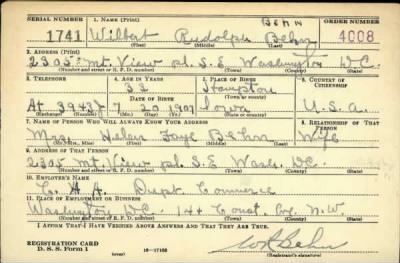 Behn
SERIAL NUMBER 1. NAME (Print) ORDER NUMBER
1741 Wilbert Rudolph Behn 4008
(First) (Middle) (Last)
2. ADDRESS (Print)
2305 Mt. View pl. S.E Washington D.C.
(Number and street or R. F. D. number) (Town) (County) (State)
3. TELEPHONE 4. AGE IN YEARS 5. PLACE OF BIRTH 6. COUNTRY OF CITIZENSHIP
32 Hampton
DATE OF BIRTH
At 3943J 7 20 1907 Iowa U.S.A.
(Exchange) (Number) (Mo.) (Day) (Yr.) (State or country)
7. NAME OF PERSON WHO WILL ALWAYS KNOW YOUR ADDRESS 8. RELATIONSHIP OF THAT PERSON
Mrs. Helen Faye Behn Wife
(Mr., Mrs., Miss) (First) (Middle) (Last)
9. ADDRESS OF THAT PERSON
2305 Mt. View pl. S.E Wash. D.C.
(Number and street or R. F. D. number) (Town) (County) (State)
10. EMPLOYER'S NAME
C. A A. Dept. Commerce
11. PLACE OF EMPLOYMENT OR BUSINESS
Washington D.C. 14 & Const. Ave. N.W.
(Number and street or R. F. D. number) (Town) (County) (State)
I AFFIRM THAT I HAVE VERIFIED ABOVE ANSWERS AND THAT THEY ARE TRUE.
REGISTRATION CARD
D. S. S. Form 1 (over) 16—17105 W R Behn
(Registrant's signature)